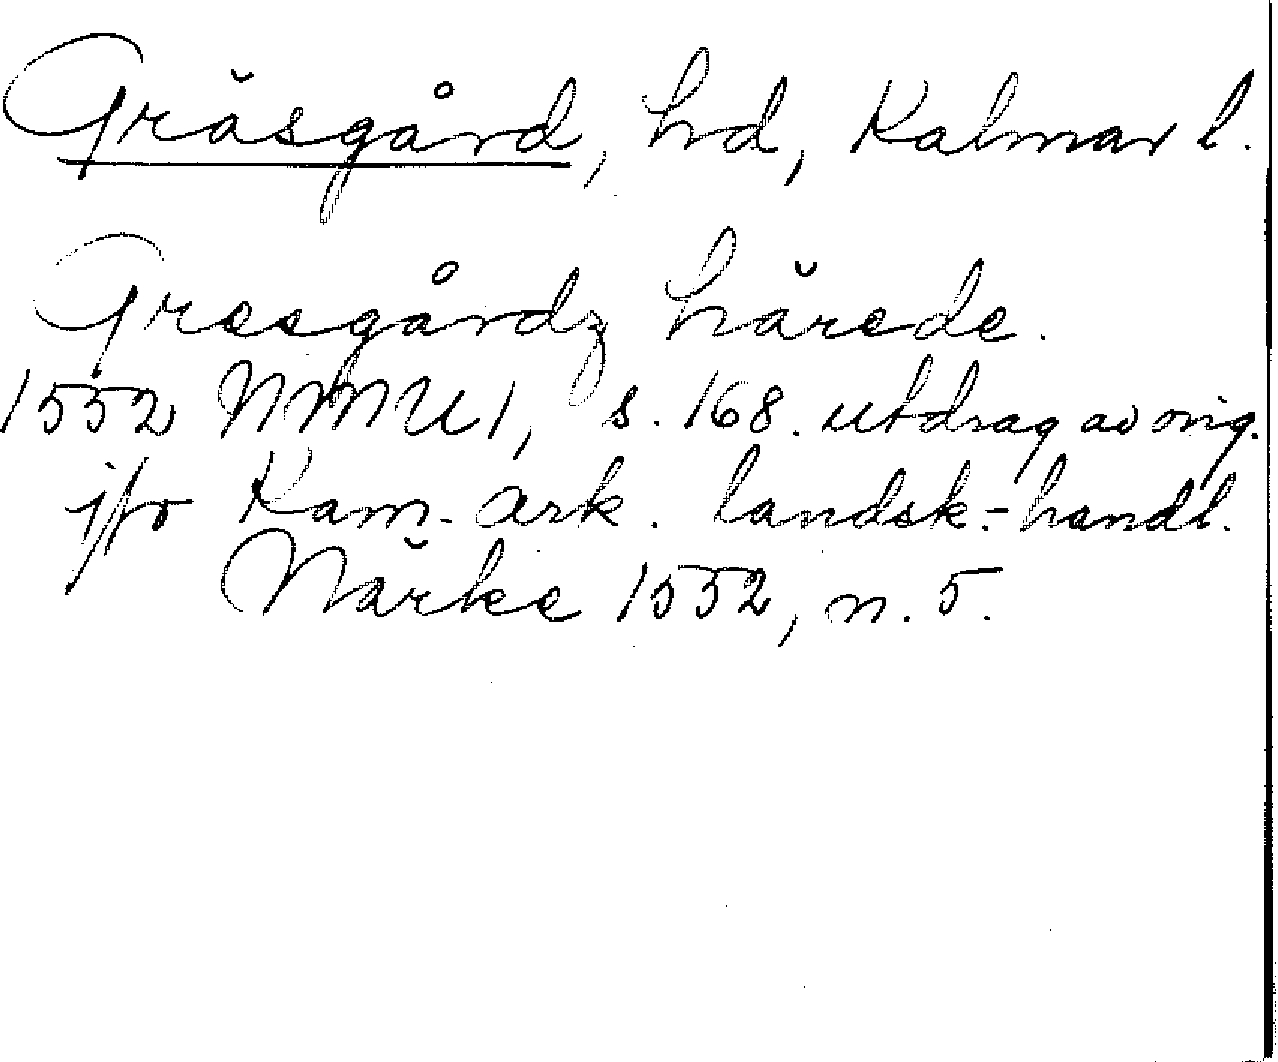 Gräsgård, hd, Kalmar l.
Gresgårdz härede.
1552 NMU 1, s. 168. utdrag av orig.
i/o Kam. ark. landsk.-handl.
Närke 1552, n. 5.